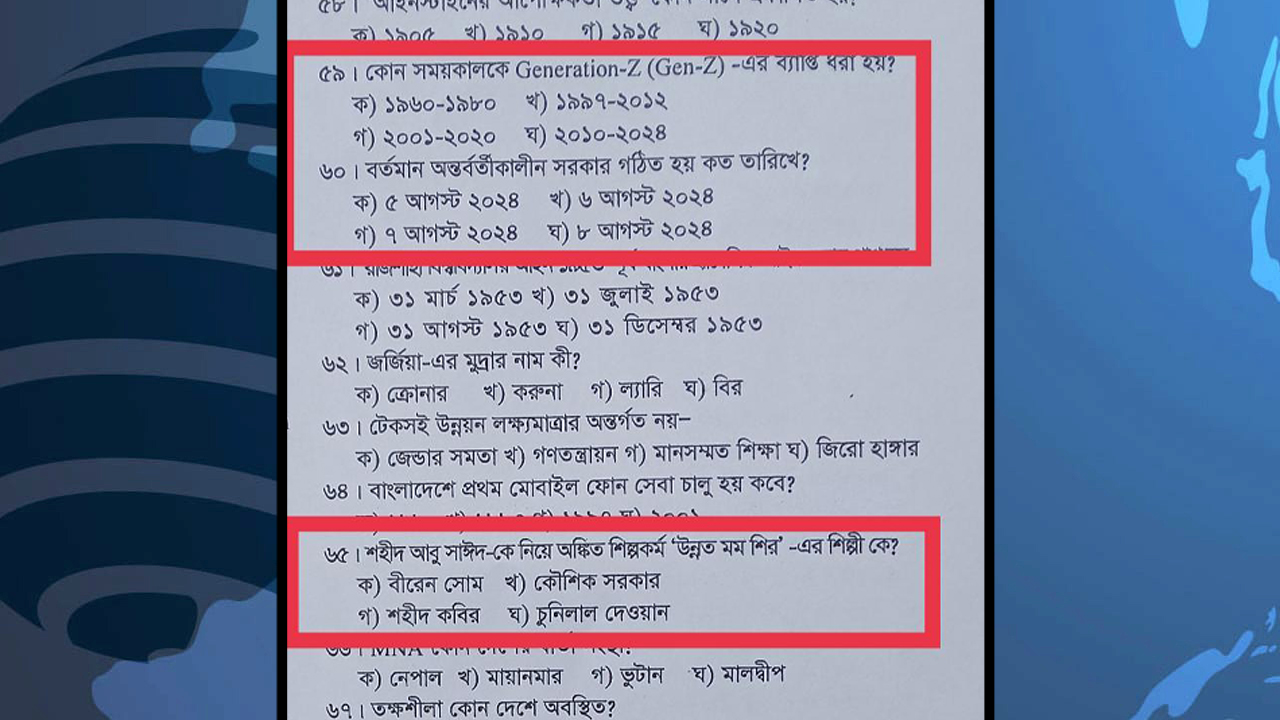 ক) ১৯০৫ খ) ১৯১০ গ) ১৯১৫ ঘ) ১৯২০
৫৯। কোন সময়কালকে Generation-Z (Gen-Z) -এর ব্যাপ্তি ধরা হয়?
ক) ১৯৬০-১৯৮০ খ) ১৯৯৭-২০১২
গ) ২০০১-২০২০ ঘ) ২০১০-২০২৪
৬০। বর্তমান অন্তর্বর্তীকালীন সরকার গঠিত হয় কত তারিখে?
ক) ৫ আগস্ট ২০২৪ খ) ৬ আগস্ট ২০২৪
গ) ৭ আগস্ট ২০২৪ ঘ) ৮ আগস্ট ২০২৪
ক) ৩১ মার্চ ১৯৫৩ খ) ৩১ জুলাই ১৯৫৩
গ) ৩১ আগস্ট ১৯৫৩ ঘ) ৩১ ডিসেম্বর ১৯৫৩
৬২। জর্জিয়া-এর মুদ্রার নাম কী?
ক) ক্রোনার খ) করুনা গ) ল্যারি ঘ) বির
৬৩। টেকসই উন্নয়ন লক্ষ্যমাত্রার অন্তর্গত নয়–
ক) জেন্ডার সমতা খ) গণতন্ত্রায়ন গ) মানসম্মত শিক্ষা ঘ) জিরো হাঙ্গার
৬৪। বাংলাদেশে প্রথম মোবাইল ফোন সেবা চালু হয় কবে?
৬৫। শহীদ আবু সাঈদ-কে নিয়ে অঙ্কিত শিল্পকর্ম ‘উন্নত মম শির’ -এর শিল্পী কে?
ক) বীরেন সোম খ) কৌশিক সরকার
গ) শহীদ কবির ঘ) চুনিলাল দেওয়ান
ক) নেপাল খ) মায়ানমার গ) ভুটান ঘ) মালদ্বীপ
৬৭। তক্ষশীলা কোন দেশে অবস্থিত?